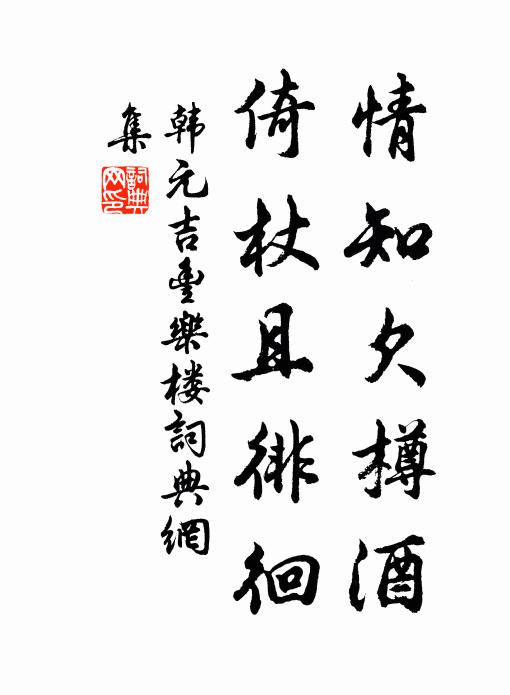 情知欠樽酒
倚杖且徘徊
韩元吉豐樂楼詞典網
集
詞典网印